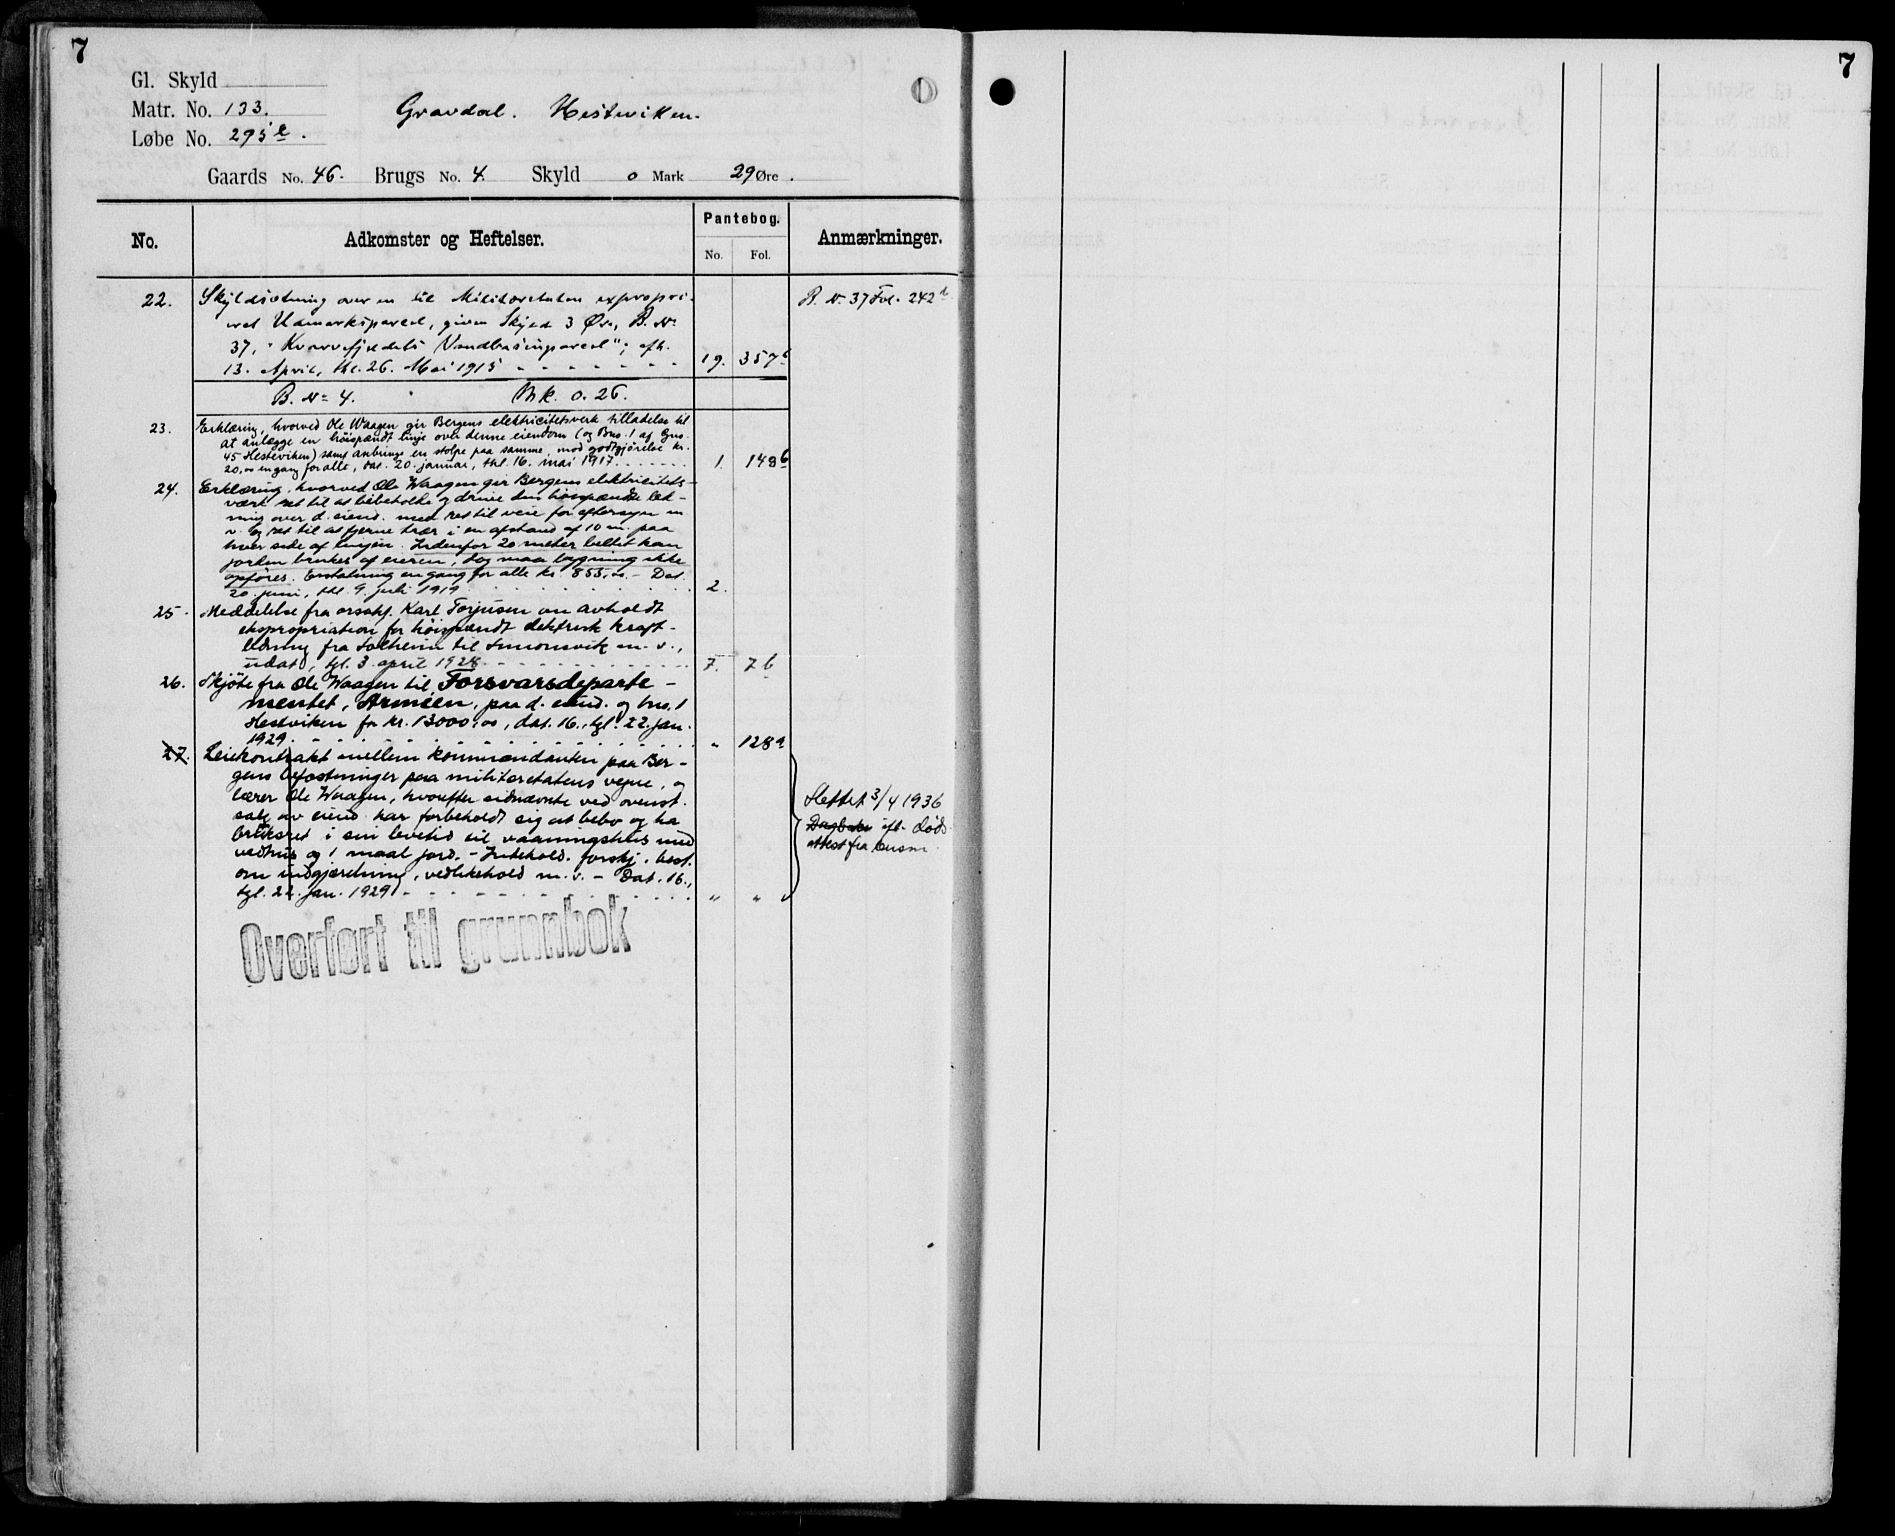 7
Gl. Skyld
Matr. No. 133.
Løbe No. 295 e.
Gravdal. Hesteviken.
Gaards No. 46. Brugs No. 4. Skyld 0 Mark 29 Øre.
No. Adkomster og Heftelser. Pantebog. Anmærkninger.
No. Fol.
22. Skyldsætning over en til Militæretaten expropri-
eret Udmarksparcel, given Skyld 3 Øre, B. No
37, "Kvarvefjeldets Vandledningsparcel"; afh.
13. April, thl. 26. Mai 1915 19. 357 b
B. No 4. Mk. 0.26.
B. No. 37 Fol. 242 b
23. Erklæring, hvorved Ole Waagen gir Bergens elektricitetsverk tilladelse til
at anlægge en høispændt linje over denne eiendom (og Bno. 1 af Gno.
45 Hesteviken) samt anbringe en stolpe paa samme, mod godtgjørelse kr.
20,00 en gang for alle, dat. 20. januar, thl. 16. mai 1917 1. 148 b
24. Erklæring, hvorved Ole Waagen gir Bergens elektricitets-
værk ret til at bibeholde og drive den høispændte led-
ning over d. eiend. med ret til veie for eftersyn m.
v. og ret til at fjerne trær i en afstand af 10 m. paa
hver side af linjen. Indenfor 20 meter beltet kan
jorden brukes af eieren, dog maa bygning ikke
opføres. Erstatning en gang for alle kr. 855,00. - Dat.
20. juni, thl. 9. juli 1919 2.
25. Meddelelse fra orsakf. Karl Torjusen om avholdt
ekspropriation for høispændt elektrisk kraft-
ledning fra Solheim til Simonsvik m. v.,
udat., tgl. 3. april 1928 7. 7 b
26. Skjøte fra Ole Waagen til Forsvarsdeparte-
mentet, Armeen, paa d. eiend. og bno. 1
Hestviken for kr. 13000,00, dat. 16., tgl. 22. jan.
1929. " 128 a
27. Leiekontrakt mellem kommandanten paa Ber-
gens befæstninger paa militæretatens vegne, og
lærer Ole Waagen, hvorefter sidnævnte ved ovenst.
salg av eiend. har forbeholdt sig at bebo og ha
bruksret i sin levetid til vaaningshus med
vedhus og 1 maal jord. - Indehold. forskj. best.
om indgjærdning, vedlikehold m. v. - Dat. 16.,
tgl. 22. jan. 1929 " "
Slettet 3/4 1936
Dagboken eft. døds-
attest fra
Overført til grunnbok
7